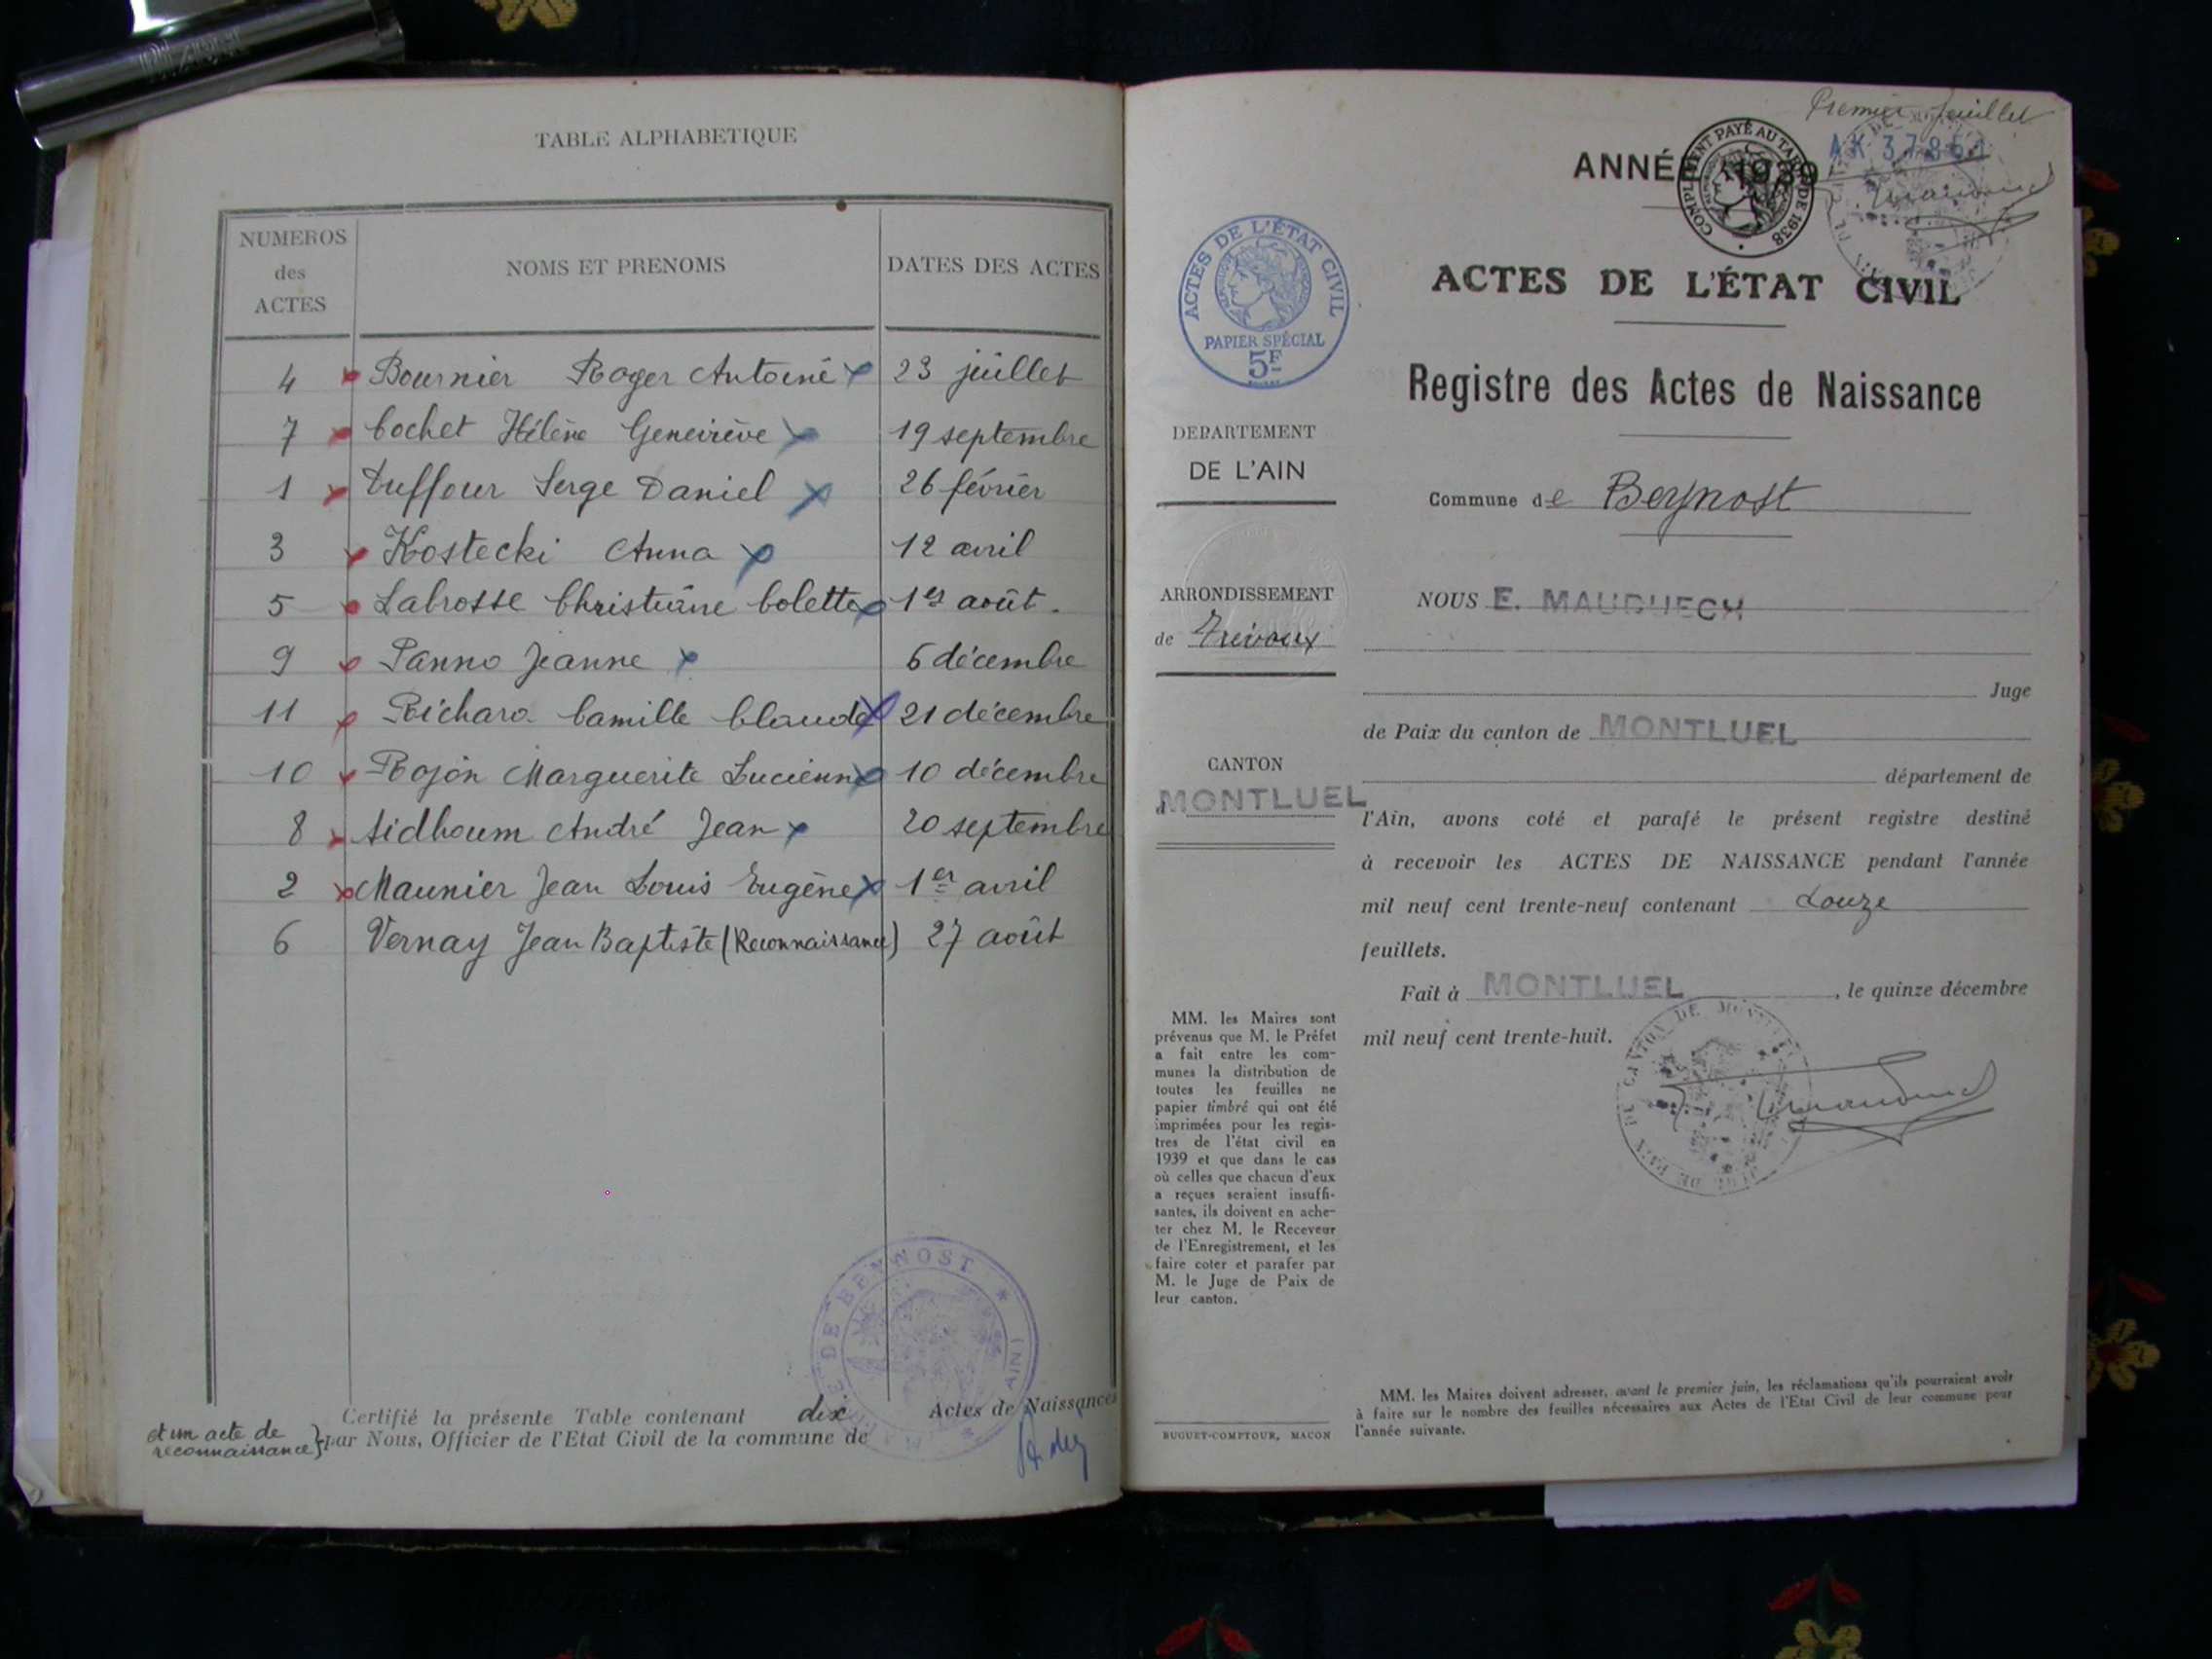 TABLE ALPHABETIQUE
NUMEROS des ACTES NOMS ET PRENOMS DATES DES ACTES
4 Bournier Roger Antoine 23 juillet
7 Cochet Hélène Geneviève 19 septembre
1 Duffour Serge Daniel 26 février
3 Kostecki Anna 12 avril
5 Labrosse Christiane Colette 1er août.
9 Panno Jeanne 6 décembre
11 Richard Camille Claude 21 décembre
10 Rojon Marguerite Lucienne 10 décembre
8 Sidhoum André Jean 20 septembre
2 Maunier Jean Louis Eugène 1er avril
6 Vernay Jean Baptiste (Reconnaissance) 27 août
Certifié la présente Table contenant dix Actes de Naissances
et un acte de reconnaissance } par Nous, Officier de l'Etat Civil de la commune de
DE BEYNOST
AIN
Premier feuillet
AK 37861
ANNÉE 1939
COMPLEMENT PAYÉ AU TARIF DE 1938
ACTES DE L'ÉTAT CIVIL
PAPIER SPÉCIAL
5F
ACTES DE L'ÉTAT CIVIL
Registre des Actes de Naissance
DEPARTEMENT
DE L'AIN
Commune de Beynost
ARRONDISSEMENT
de Trévoux
CANTON
d MONTLUEL
NOUS E. MAUDUECH
Juge
de Paix du canton de MONTLUEL
département de
l'Ain, avons coté et parafé le présent registre destiné
à recevoir les ACTES DE NAISSANCE pendant l'année
mil neuf cent trente-neuf contenant Douze
feuillets.
Fait à MONTLUEL, le quinze décembre
mil neuf cent trente-huit.
MM. les Maires sont
prévenus que M. le Préfet
a fait entre les com-
munes la distribution de
toutes les feuilles ne
papier timbré qui ont été
imprimées pour les regis-
tres de l'état civil en
1939 et que dans le cas
où celles que chacun d'eux
a reçues seraient insuffi-
santes, ils doivent en ache-
ter chez M. le Receveur
de l'Enregistrement, et les
faire coter et parafer par
M. le Juge de Paix de
leur canton.
BUGUET-COMPTOUR, MACON
MM. les Maires doivent adresser, avant le premier juin, les réclamations qu'ils pourraient avoir
à faire sur le nombre des feuilles nécessaires aux Actes de l'Etat Civil de leur commune pour
l'année suivante.